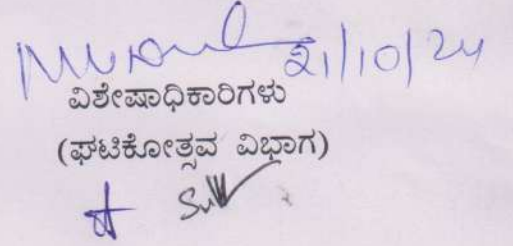 21/10/24
ವಿಶೇಷಾಧಿಕಾರಿಗಳು
(ಘಟಿಕೋತ್ಸವ ವಿಭಾಗ)